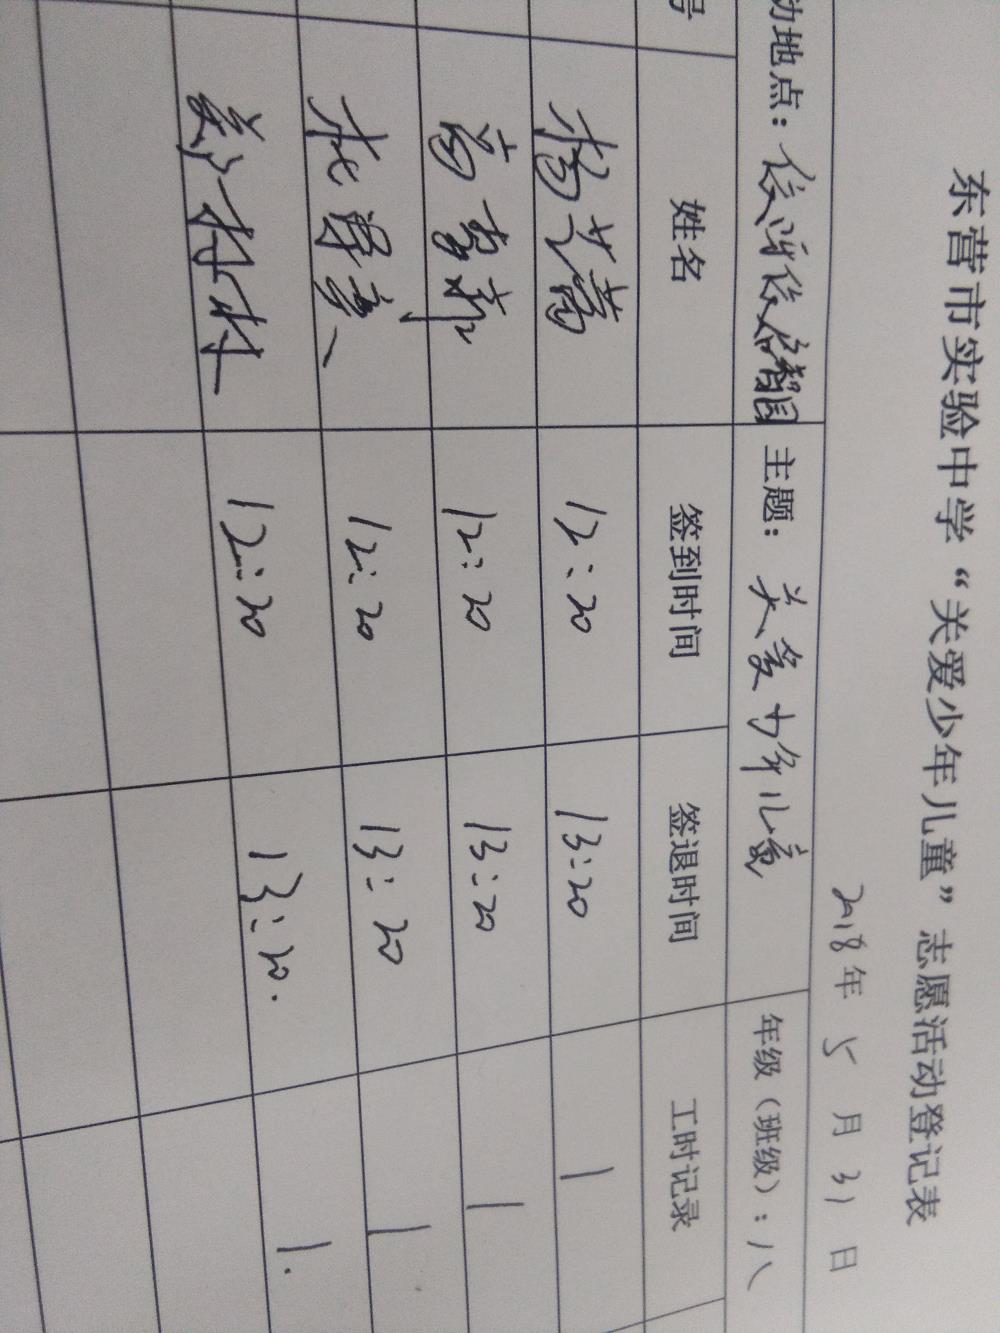 东营市实验中学“关爱少年儿童”志愿活动登记表
2018年 5 月 31 日
动地点: 主题: 关爱少年儿童 年级（班级）: 八
号 姓名 签到时间 签退时间 工时记录
12:20 13:20 1
12:20 13:20 1
12:20 13:20 1
12:20 13:20. 1.